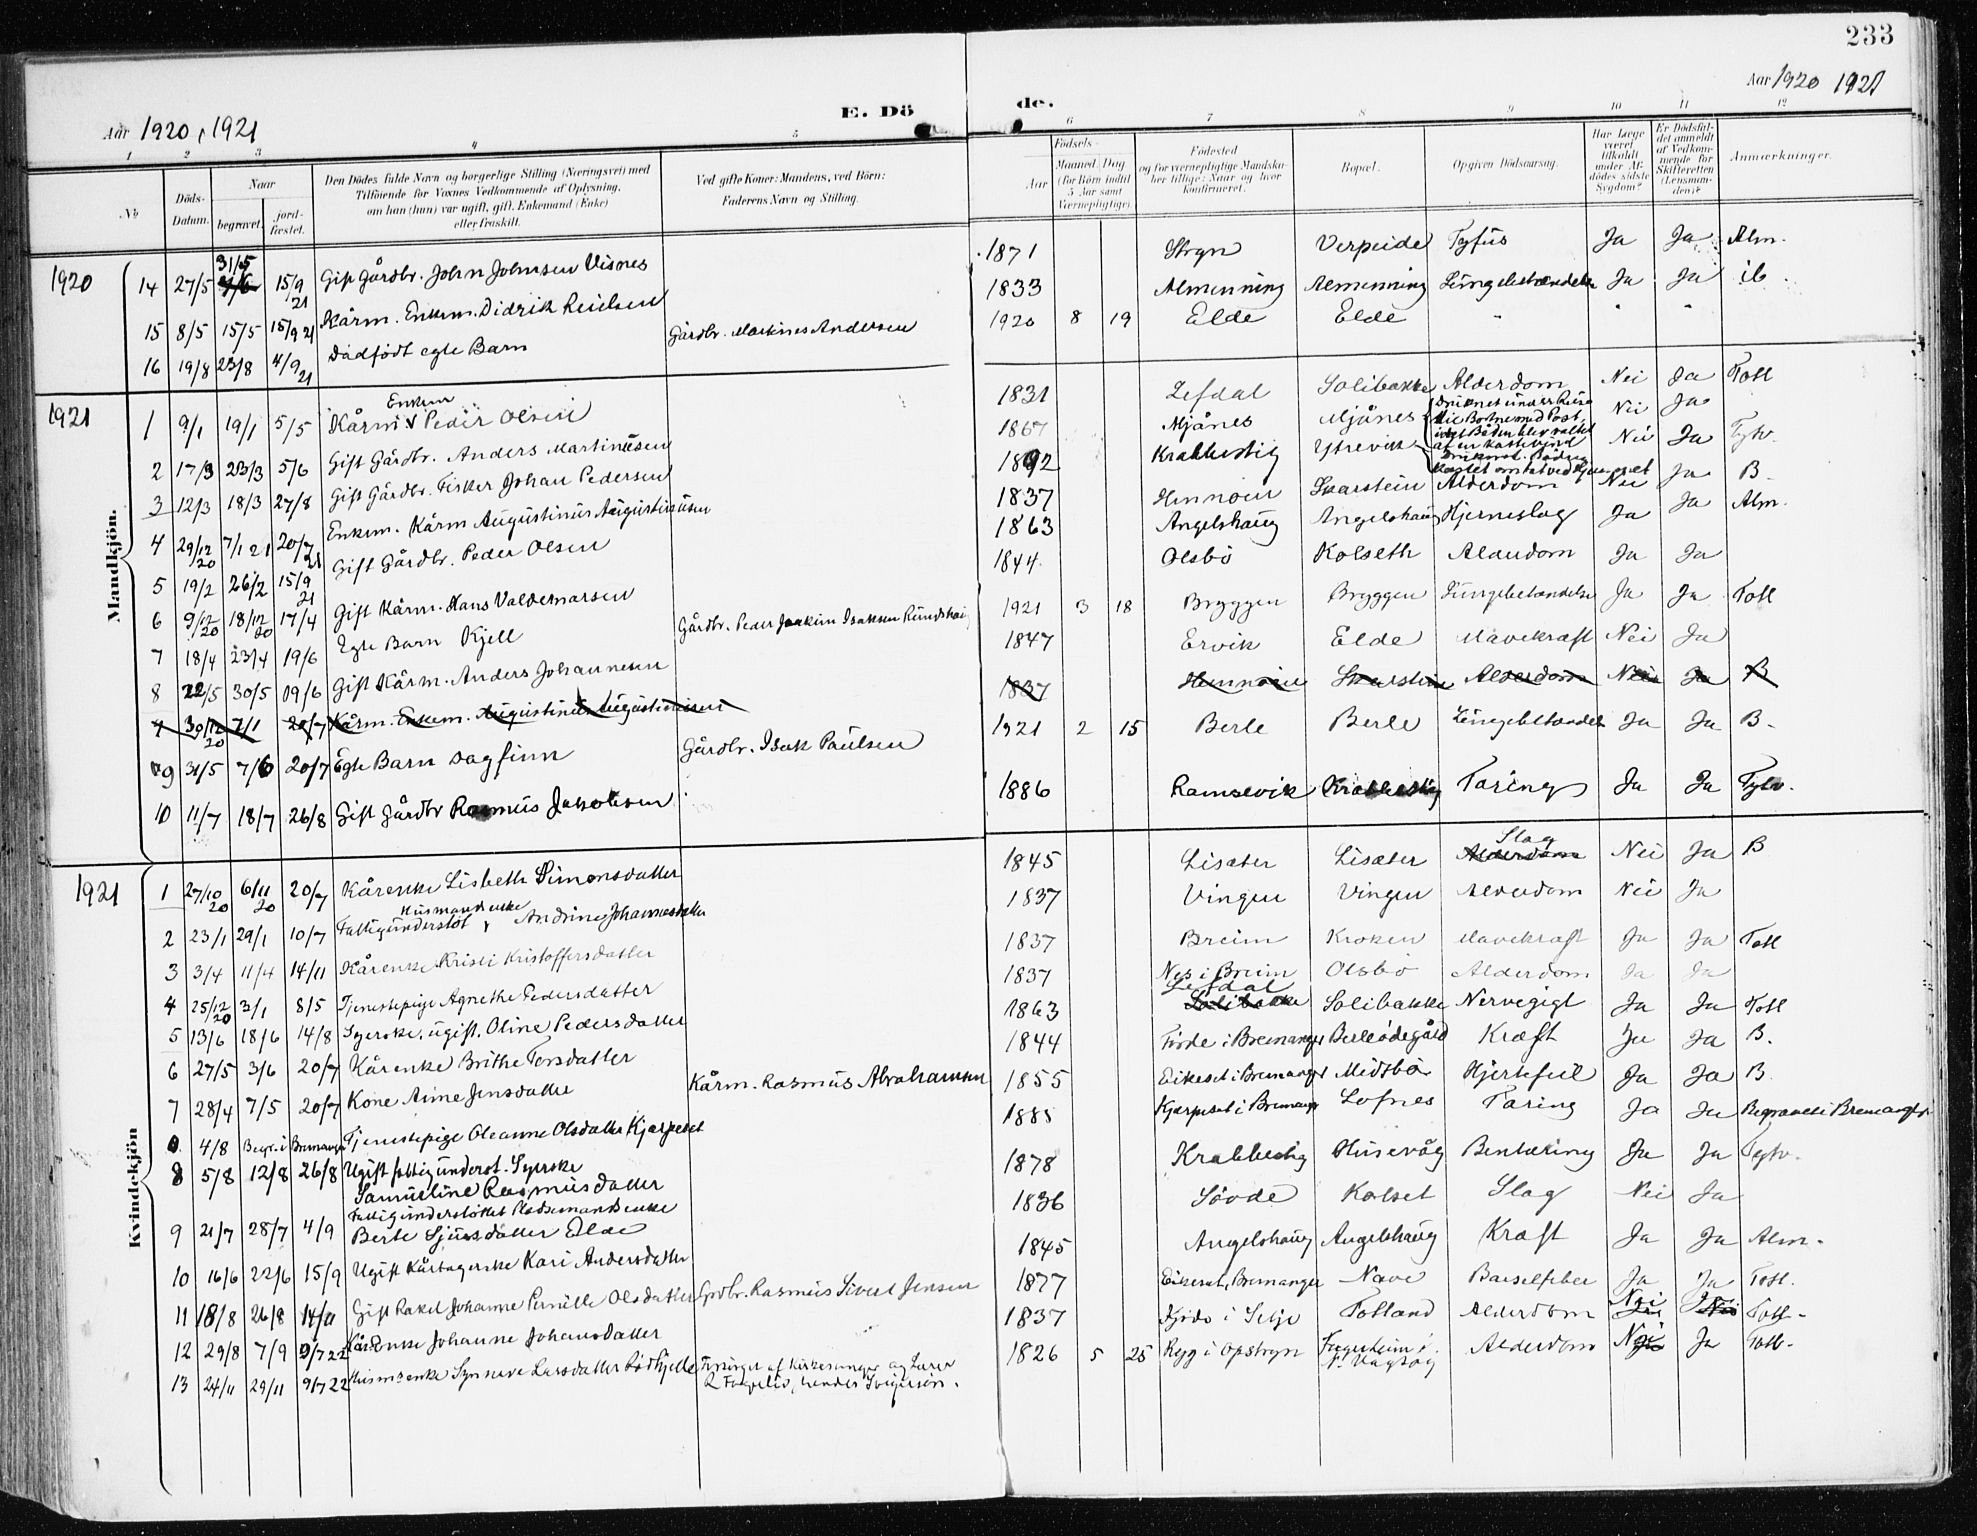 233
Aar 1920, 1921
E. Dö
de.
Aar 1920 1921
1 2 3 4 5 6 7 8 9 10 11 12
No
Döds-Datum.
Naar
begravet.
jord-fæstet.
Den Dödes fulde Navn og borgerlige Stilling (Næringsvei) med
Tilföiende for Voxnes Vedkommende af Oplysning,
om han (hun) var ugift, gift, Enkemand (Enke)
eller fraskilt.
Ved gifte Koner: Mandens, ved Börn:
Faderens Navn og Stilling.
Födsels-
Aar
Maaned. Dag
(for Börn indtil
5 Aar samt
Værnepligtige).
Födested
og for værnepligtige Mandska-
ber tillige: Naar og hvor
konfirmeret.
Bopæl.
Opgiven Dödsaarsag.
Har Læge
været
tilkaldt
under Af-
dödes sidste
Sygdom?
Er Dödsfal-
det anmeldt
af Vedkom-
mende for
Skifteretten
(Lensman-
den)?
Anmærkninger.
Mandkjön.
1920
14 27/5 31/5 15/9 21 Gift Gårdbr. John Johnsen Visnes 1871 Stryn Verpeide Tyfus Ja Ja Alm.
15 8/5 15/5 15/9 21 Kårm. Enkem. Didrik Reielsen 1833 Almenning Almenning Lungebetændelse Ja Ja ib.
16 19/8 23/8 4/9 21 Dødfødt egte Barn Gårdbr. Markines Andersen 1920 8 19 Elde Elde " " "
1921
1 9/1 19/1 5/5 Kårm. Enkem Peder Olsen 1831 Lefdal Solibakke Alderdom Nei Ja Totl
2 17/3 23/3 5/6 Gift Gårdbr. Anders Martinusen 1867 Mjånes Mjånes Druknet under Reise Nei Ja
3 12/3 18/3 27/8 Gift Gårdbr. Fisker Johan Pedersen 1892 Krabbestig Ytrevik Nei Ja Tytv.
4 29/12 20 7/1 21 20/7 21 Enkem. Kårm Augustinus Augustinusen 1837 Hennøen Skarstein Alderdom Nei Ja B.
5 19/2 26/2 15/9 21 Gift Gårdbr. Peder Olsen 1863 Angelshaug Angelshaug Hjerneslag Ja Ja Alm.
6 9/12 20 18/12 20 17/4 Gift Kårm. Hans Valdemarsen 1844 Olsbø Kolseth Alderdom Ja Ja
7 18/4 23/4 19/6 Egte Barn Kjell Gårdbr. Peder Joakim Isaksen 1921 3 18 Bryggen Bryggen Lungebetændelse Ja Ja Totl
8 22/5 30/5 19/6 Gift Kårm. Anders Johannesen 1847 Ervik Elde Mavekræft Nei Ja
30/12 20 7/1 20/7 Kårm. Enkem. Augustinus Augustinusen 1837 Hennøen Skarstein Alderdom Nei Ja B
9 31/5 7/6 20/7 Egte Barn Dagfinn Gårdbr. Isak Paulsen 1921 2 15 Berle Berle Lungebetændelse Ja Ja B.
10 11/7 18/7 26/8 Gift Gårdbr Rasmus Jakobsen 1886 Ramsevik Krabbestig Tæring Ja Ja Tytv.
Kvindekjön
1921
1 27/10 20 6/11 20 20/7 Kårenke Lisbeth Simonsdatter 1845 Lisæter Lisæter Alderdom Slag Nei Ja B
2 23/1 29/1 10/7 Fattigunderstøt Husmandsenke Andrine Johannesdatter 1837 Vingen Vingen Alderdom Nei Ja
3 3/4 11/4 14/11 Kårenke Kristi Kristoffersdatter 1837 Breim Kroken Mavekræft Ja Ja Totl
4 25/12 20 3/1 8/5 Tjenestepige Agnethe Pedersdatter 1837 Nes i Breim Olsbø Alderdom Ja Ja
5 13/6 18/6 14/8 Syerske, ugift. Oline Pedersdatter 1863 Lefdal Solibakke Solibakke Nervegigt Ja Ja Totl
6 27/5 3/6 20/7 Kårenke Brithe Torsdatter 1844 Førde i Bremanger Berleødegård Kræft Ja Ja B.
7 28/4 7/5 20/7 Kone Anne Jensdatter Kårm. Rasmus Abrahamsen 1855 Eikeset i Bremanger Midtbø Hjertefeil Ja Ja B
4/8 Begr. i Bremanger Tjenestepige Oleanne Olsdatter Kjærpeset 1885 Kjærpeset i Bremanger Lofnes Tæring Ja Ja Begravet i Bremanger
8 5/8 12/8 26/8 Ugift fattigunderst. Syerske
Samueline Rasmusdatter 1878 Krabbestig Husevåg Bentæring Ja Ja Tytv.
9 21/7 28/7 4/9 Fattigunderstøttet Pladsemandsenke
Berte Sjursdatter Elde 1836 Søvde Kolset Slag Nei Ja
10 16/6 22/6 15/9 Ugift Kårtagerske Kari Andersdatter 1845 Angelshaug Angelshaug Kræft Ja Ja Alm.
11 18/8 26/8 14/11 Gift Rakel Johanne Pernille Olsdatter Grdbr. Rasmus Sivert Jensen 1877 Eikeset, Bremanger Nave Barselfeber Ja Ja Totl.
12 29/8 7/9 9/7 22 Kårenke Johanne Johansdatter 1837 Kjøde i Selje Totland Alderdom Nei Ja Totl.
13 24/11 29/11 9/7 22 Husm.enke Synneve Larsdatter Lødtjelle Forsørget af Kirkesanger og Lærer
R. Fagerlid, hendes Svigersøn. 1826 5 25 Ryg i Opstryn Fagerheim i
N. Vågsøy Alderdom Nei Ja Totl.